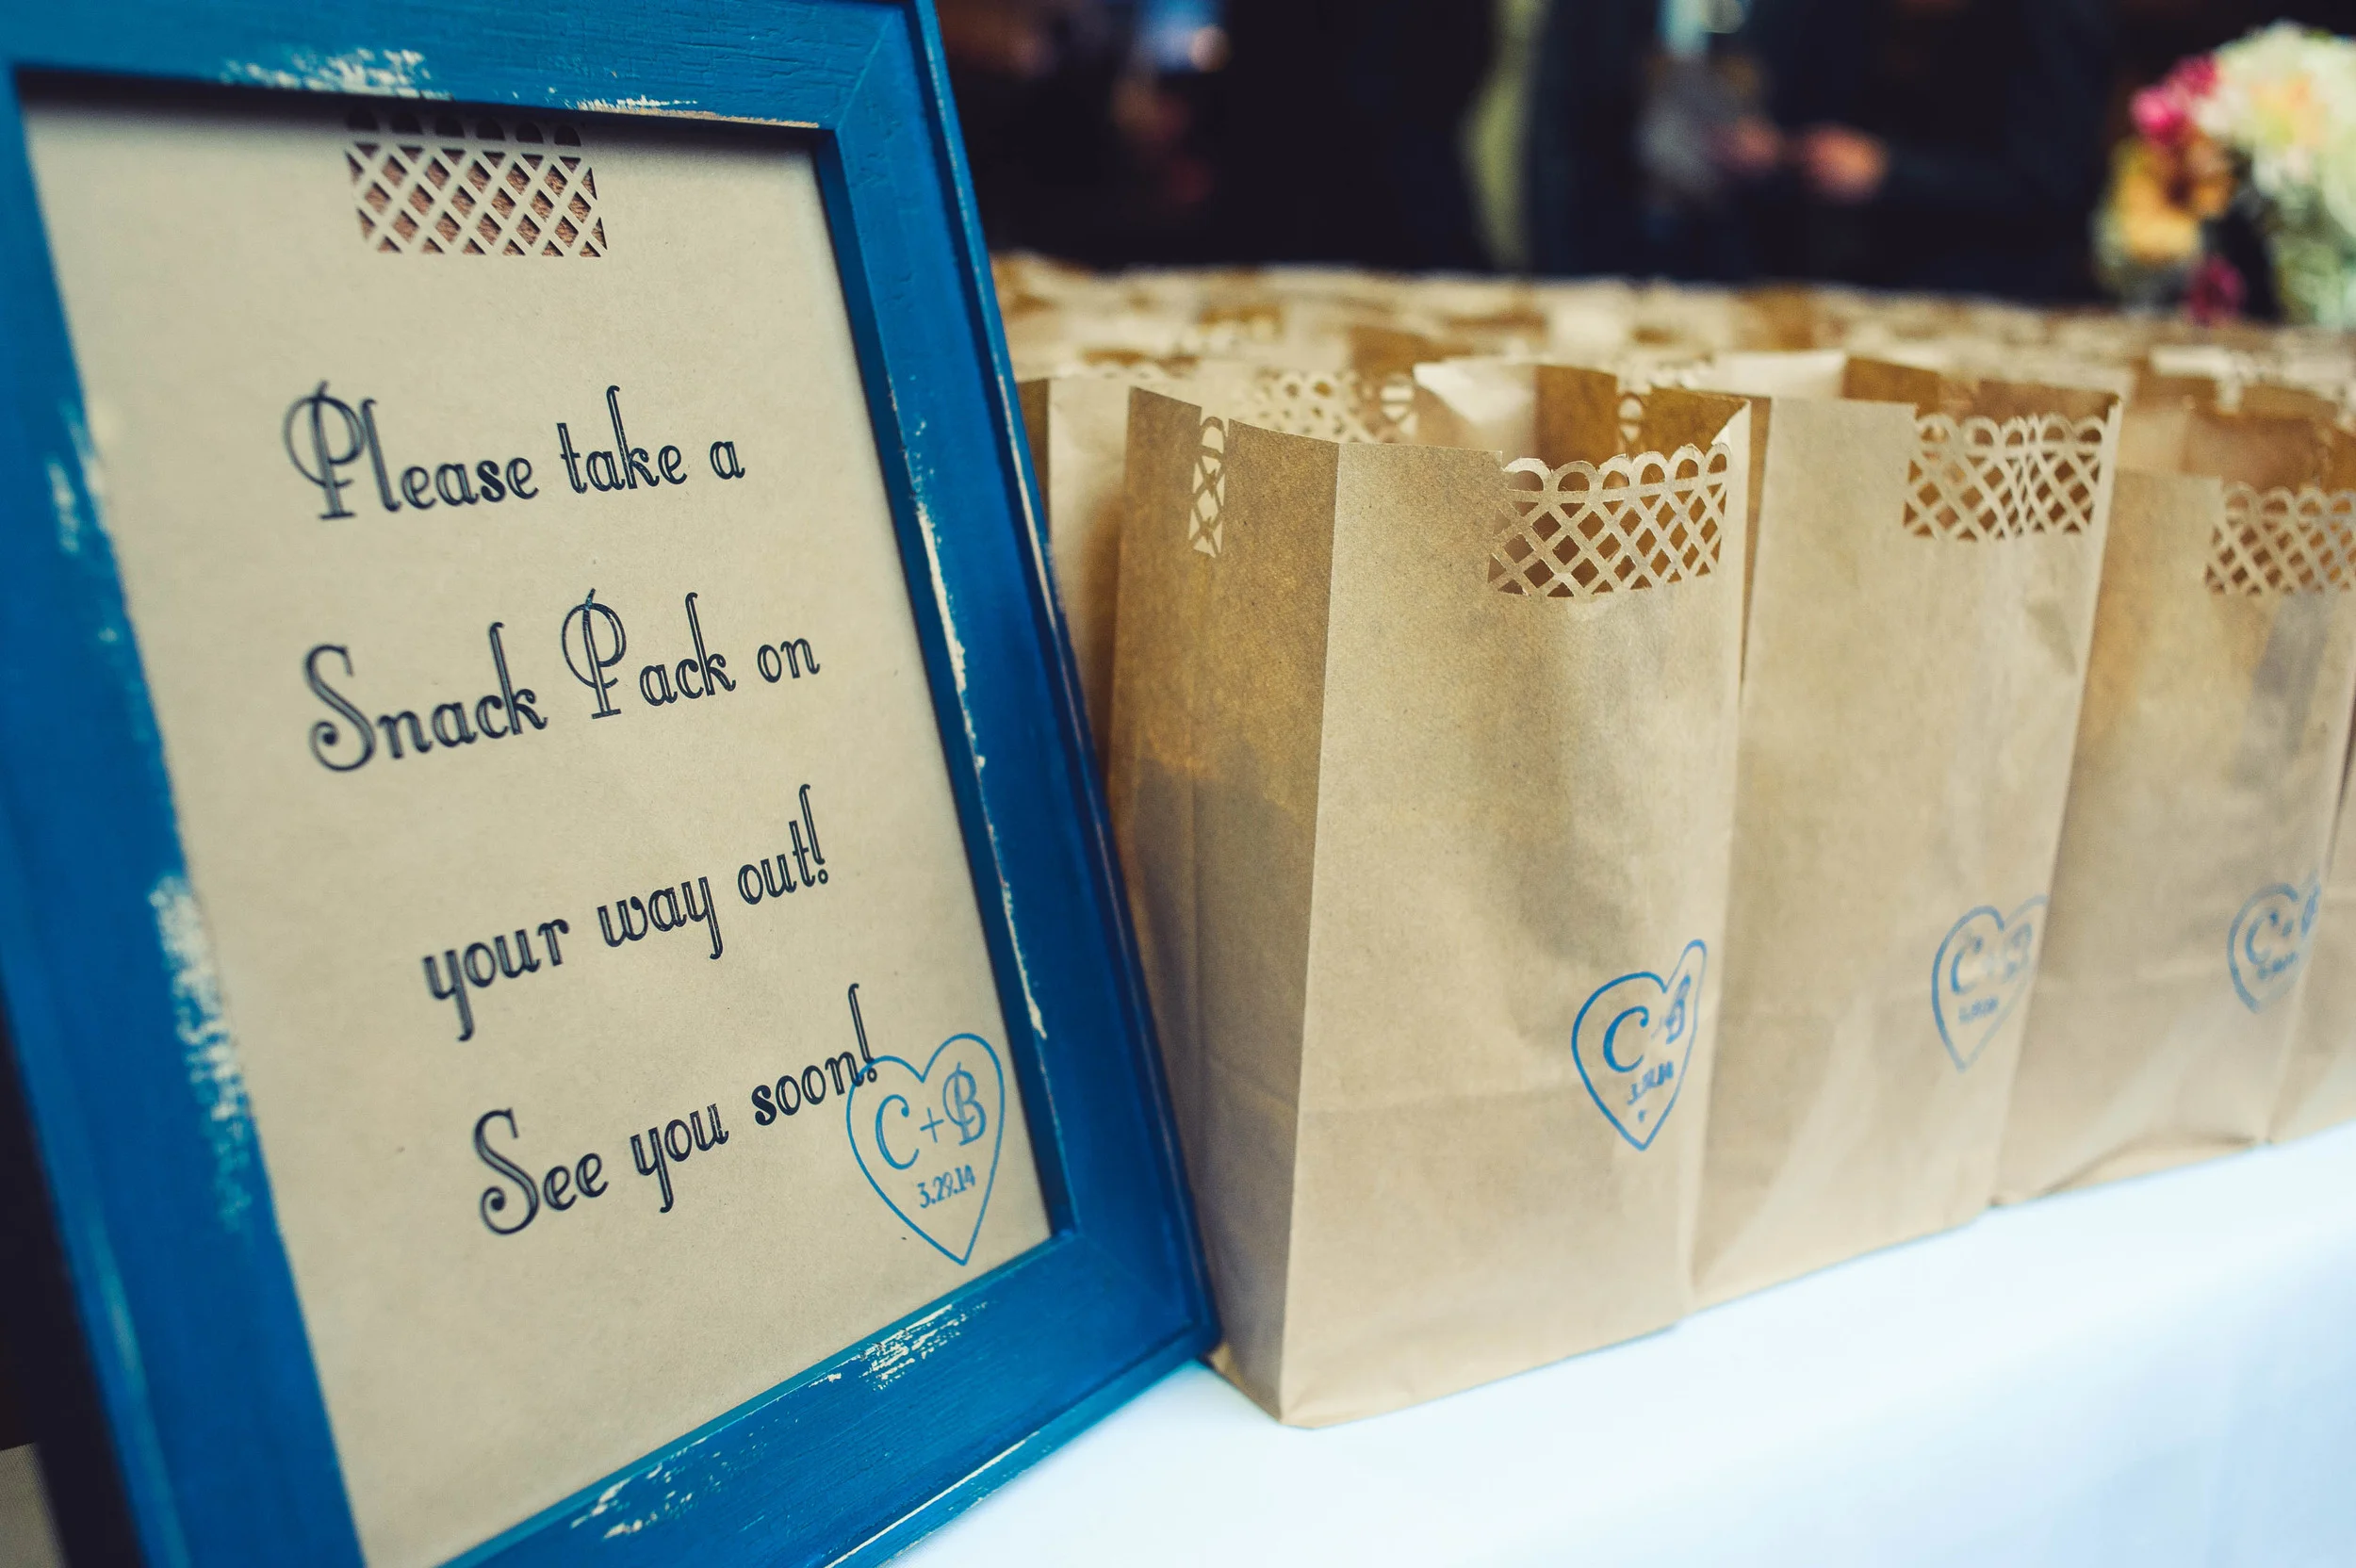 Please take a
Snack Pack on
your way out!
See you soon!
C+B
3.29.14
C+B